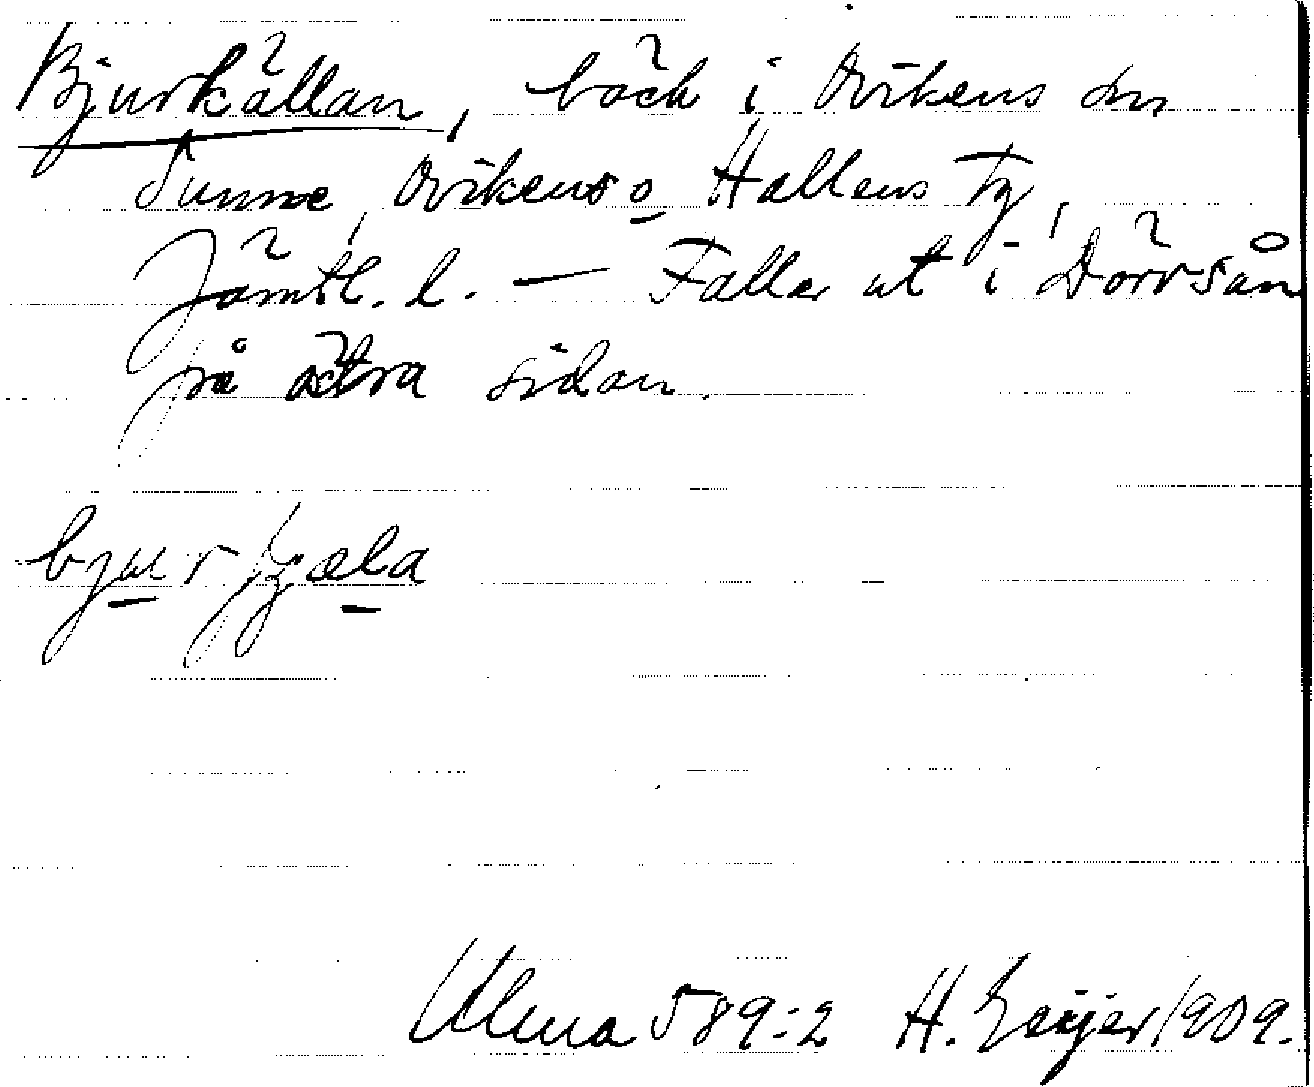 Bjurkällan, bäck i Ovikens sn
Sunne, Ovikens o Hallens tg,
Jämtl. l. — Faller ut i Dörrsån
på östra sidan.
Ulma 589:2 H. Geijer 1909.